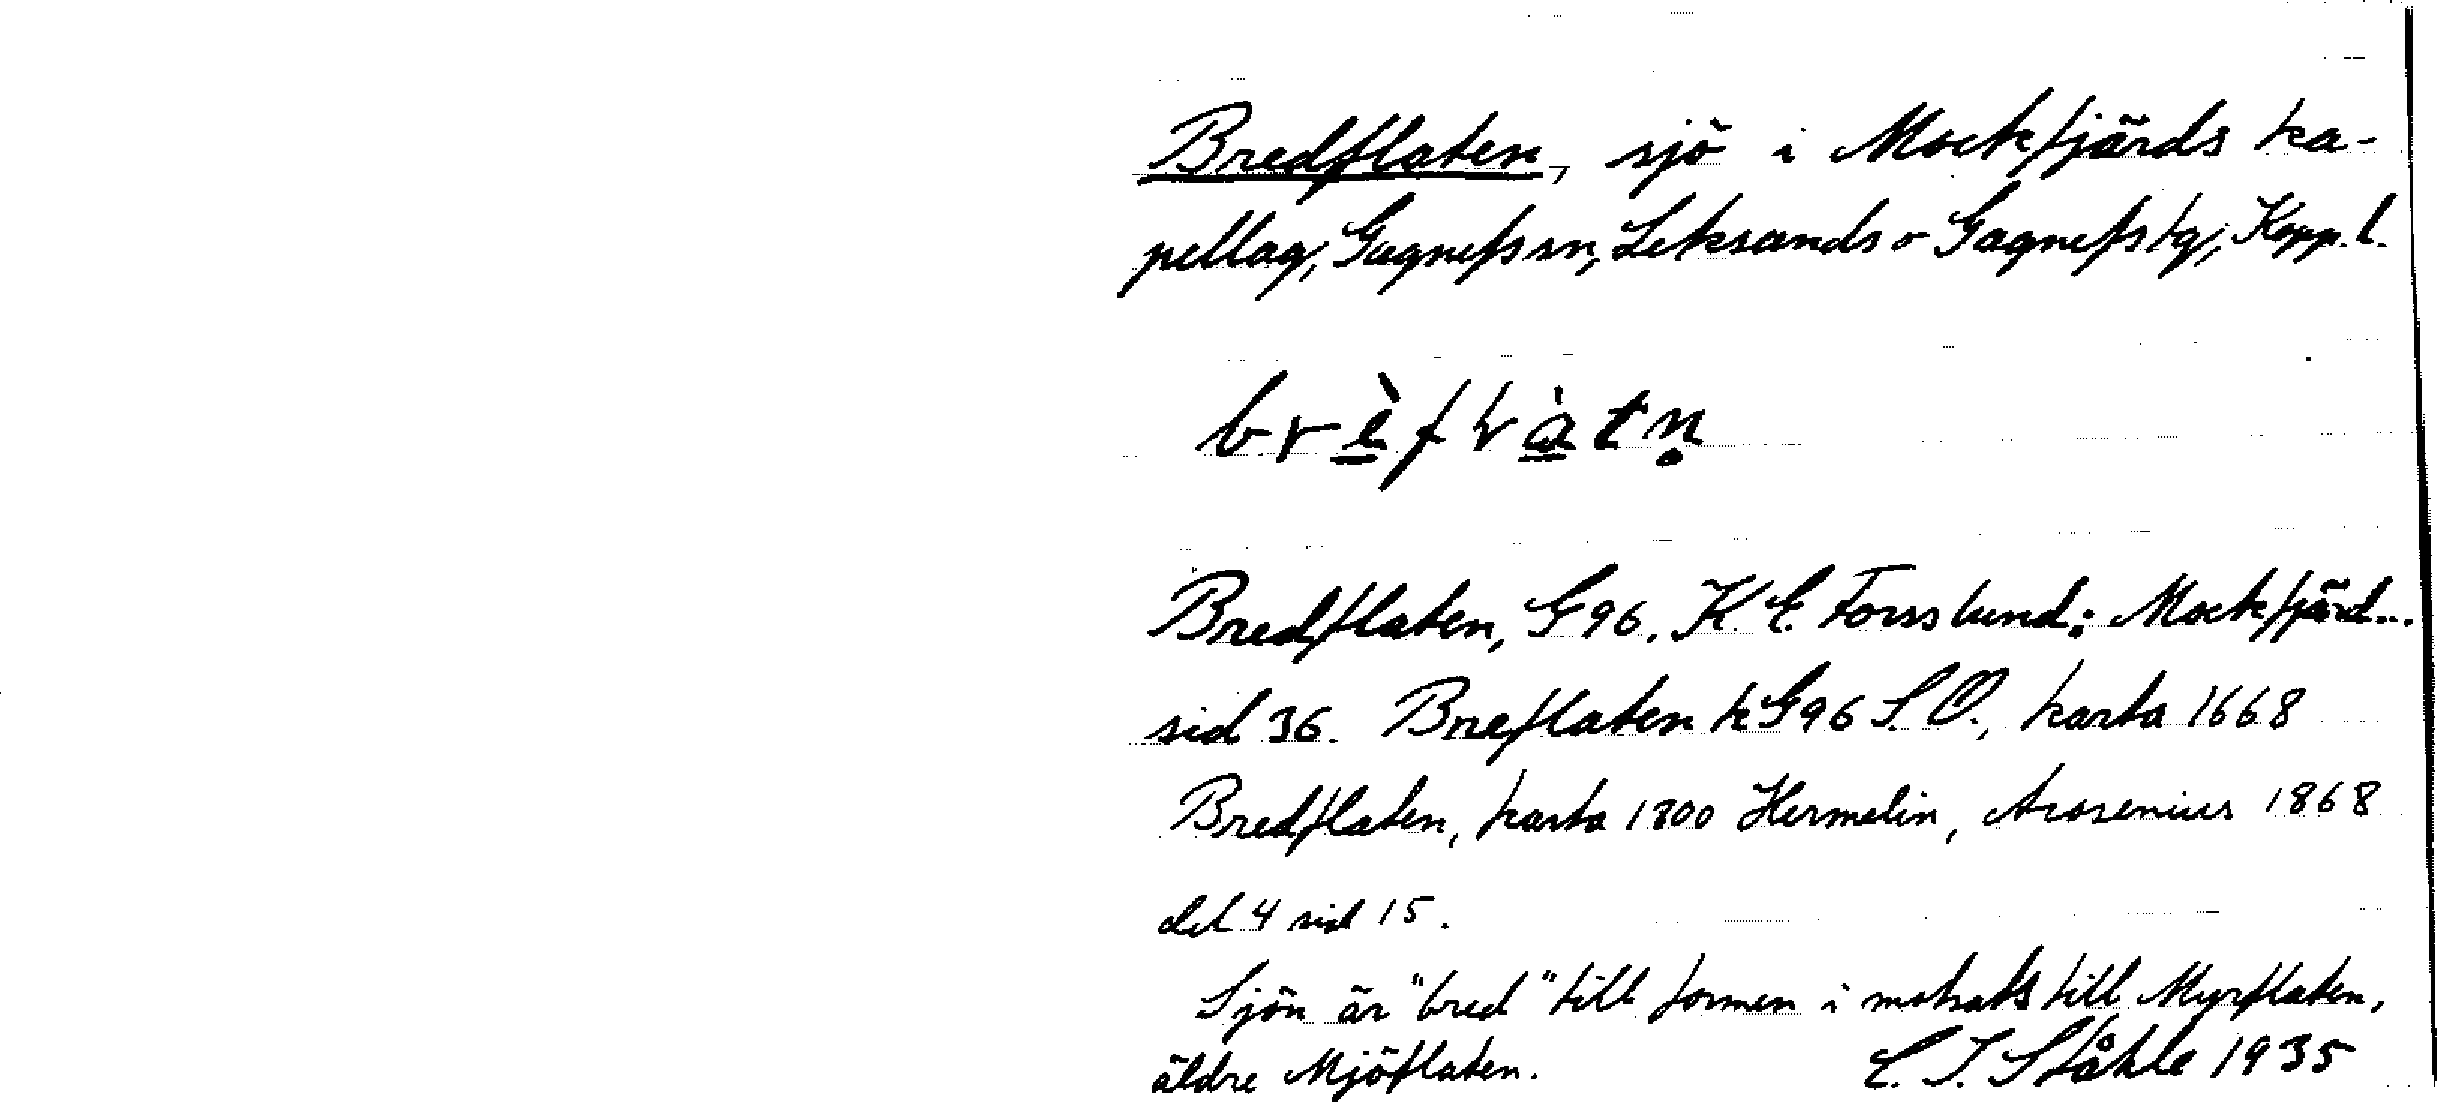 Bredflaten, sjö i Mockfjärds ka-
pellag, Gagnefs sn, Leksands o Gagnefs tg, Kopp. l.
Bredflaten, G96. K. E. Forsslund: Mockfjärd...
sid 36. Breflaten k G96 S.O., karta 1668
Bredflaten, karta 1800 Hermelin, Arosenius 1868
del 4 sid 15.
Sjön är "bred" till formen i motsats till Myrflaten,
äldre Mjöflaten. C. I. Ståhle 1935